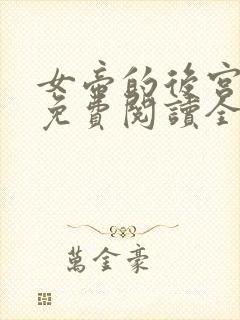 女帝的後宮
免費閱讀全
萬金豪